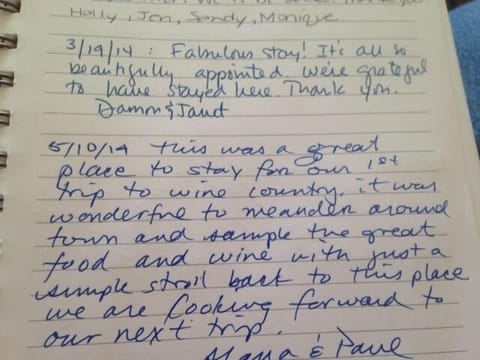 Holly, Jon, Sandy, Monique.
3/19/14 : Fabulous stay! It's all so
beautifully appointed. We're grateful
to have stayed here. Thank you.
Damon & Janet
5/10/14 This was a great
place to stay for our 1st
trip to wine country. it was
wonderful to meander around
town and sample the great
food and wine with just a
simple stroll back to this place
we are looking forward to
our next trip.
& Dave